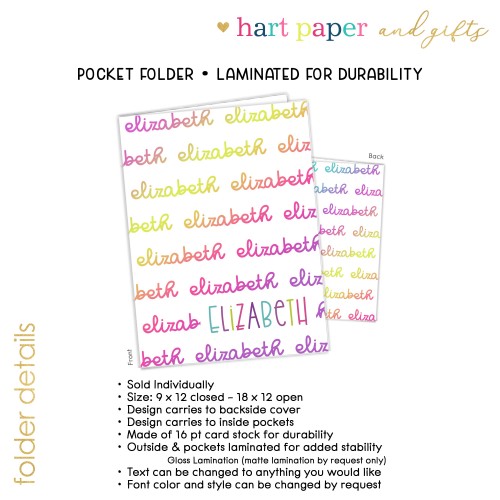 hart paper and gifts
POCKET FOLDER • LAMINATED FOR DURABILITY
elizabeth elizabeth
beth elizabeth eliz
elizabeth elizabeth
beth elizabeth eliz
elizabeth elizabeth
beth elizabeth eliz
elizab ELIZABETH
beth elizabeth eliz
Front
Back
elizabeth
beth eliza
elizabeth
beth eliza
elizabeth
beth eliza
elizabeth
beth eliza
folder details
• Sold Individually
• Size: 9 x 12 closed – 18 x 12 open
• Design carries to backside cover
• Design carries to inside pockets
• Made of 16 pt card stock for durability
• Outside & pockets laminated for added stability
Gloss Lamination (matte lamination by request only)
• Text can be changed to anything you would like
• Font color and style can be changed by request